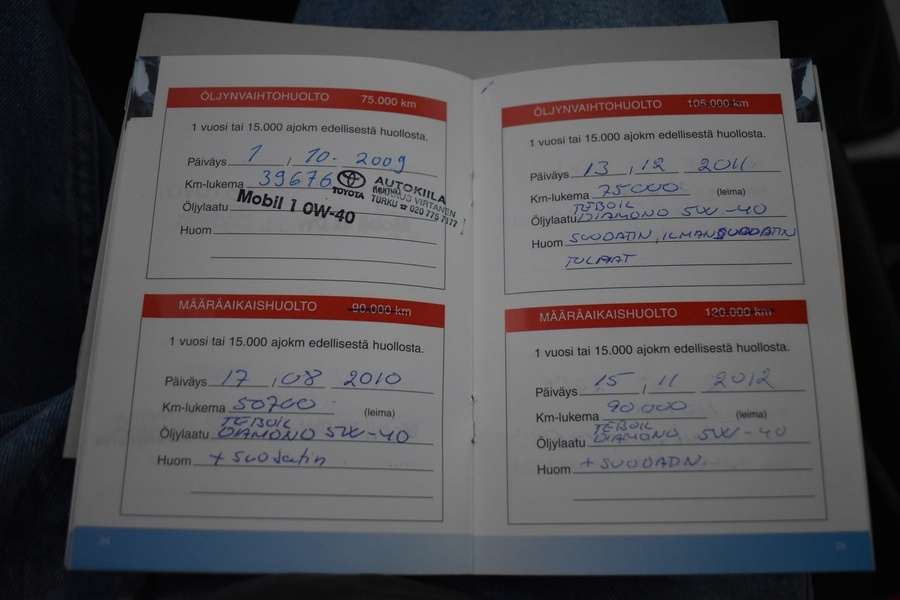 ÖLJYNVAIHTOHUOLTO 75.000 km
1 vuosi tai 15.000 ajokm edellisestä huollosta.
Päiväys 1 / 10. 2009
Km-lukema 39676
TOYOTA AUTOKIILA
MARKUS VIRTANEN
TURKU ☎ 020 779 7177
Öljylaatu Mobil 1 0W-40
Huom
MÄÄRÄAIKAISHUOLTO 90.000 km
1 vuosi tai 15.000 ajokm edellisestä huollosta.
Päiväys 17 / 08 2010
Km-lukema 50700 (leima)
TEBOIL
Öljylaatu DIAMOND 5W-40
Huom + Suodatin
24
ÖLJYNVAIHTOHUOLTO 105.000 km
1 vuosi tai 15.000 ajokm edellisestä huollosta.
Päiväys 13 / 12 2011
Km-lukema 75000 (leima)
TEBOIL
Öljylaatu DIAMOND 5W-40
Huom SUODATIN, ILMANSUODATIN
TULPAT
MÄÄRÄAIKAISHUOLTO 120.000 km
1 vuosi tai 15.000 ajokm edellisestä huollosta.
Päiväys 15 / 11 2012
Km-lukema 90000 (leima)
TEBOIL
Öljylaatu DIAMOND 5W-40
Huom + SUODADN.
25